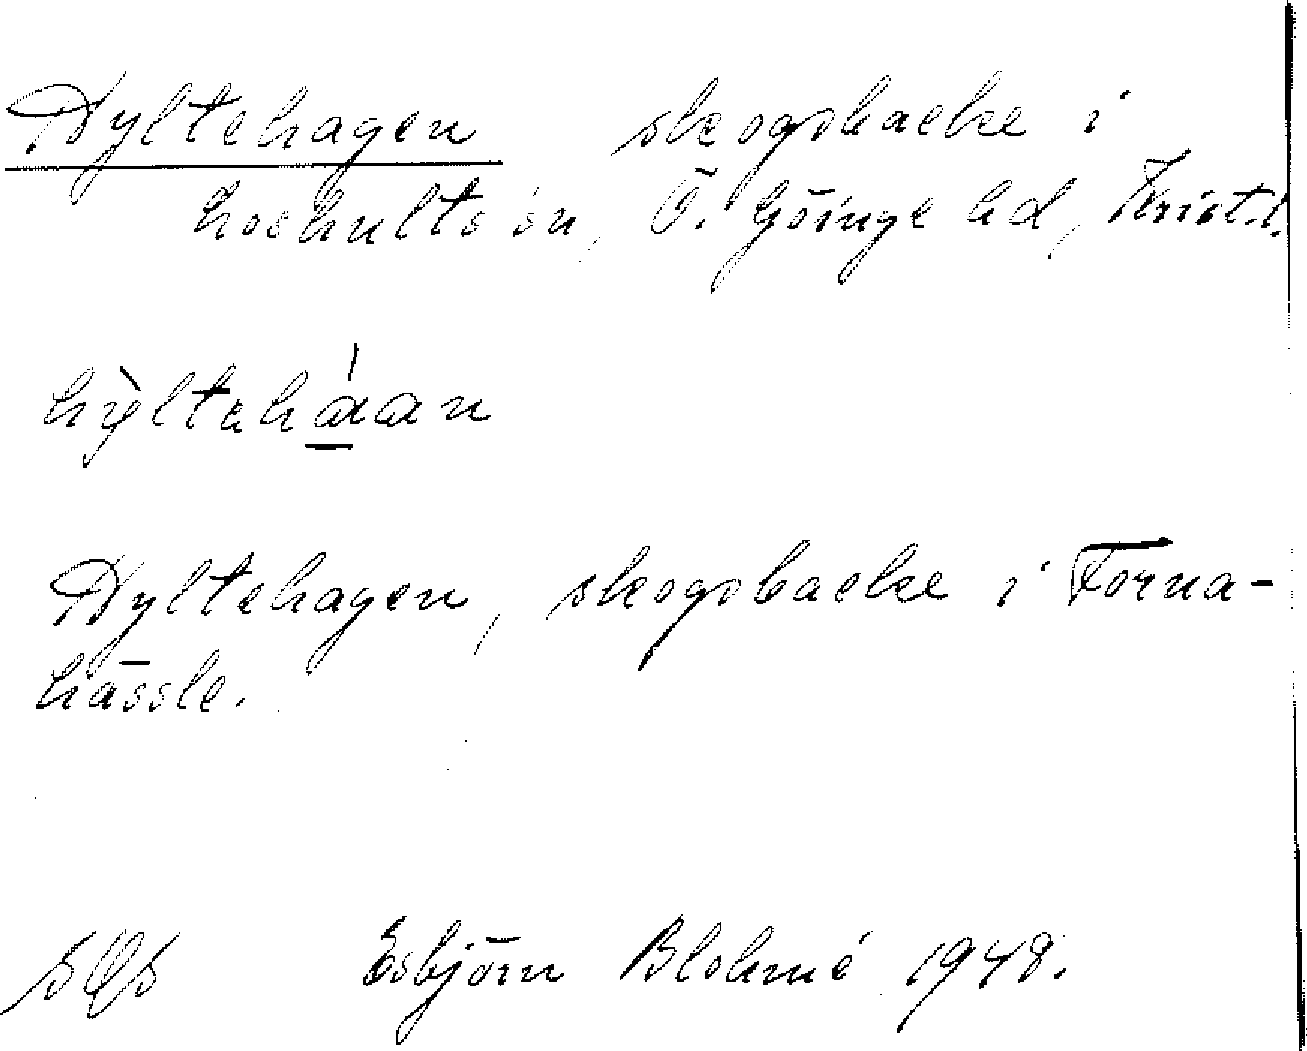 Hyltehagen skogsbacke i
Loshults sn, Ö. Göinge hd, Krist.l.
hỳlteháan
Hyltehagen, skogsbacke i Torna-
hässle.
Esbjörn Blohmé 1948.